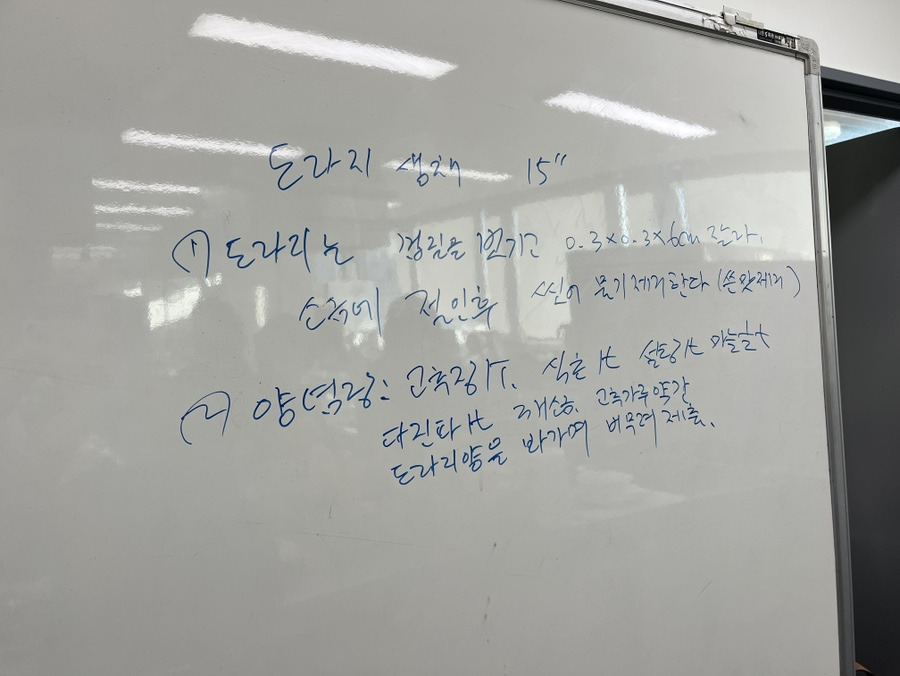 도라지 생채 15"
(1) 도라지는 껍질을 벗기고 0.3×0.3×6cm 잘라.
소금에 절인후 씻어 물기제거한다 (쓴맛제거)
(2) 양념장: 고추장1T. 식초1t 설탕1t 마늘1t
다진파1t 깨소금. 고추가루약간
도라지양을 봐가며 버무려 제출.